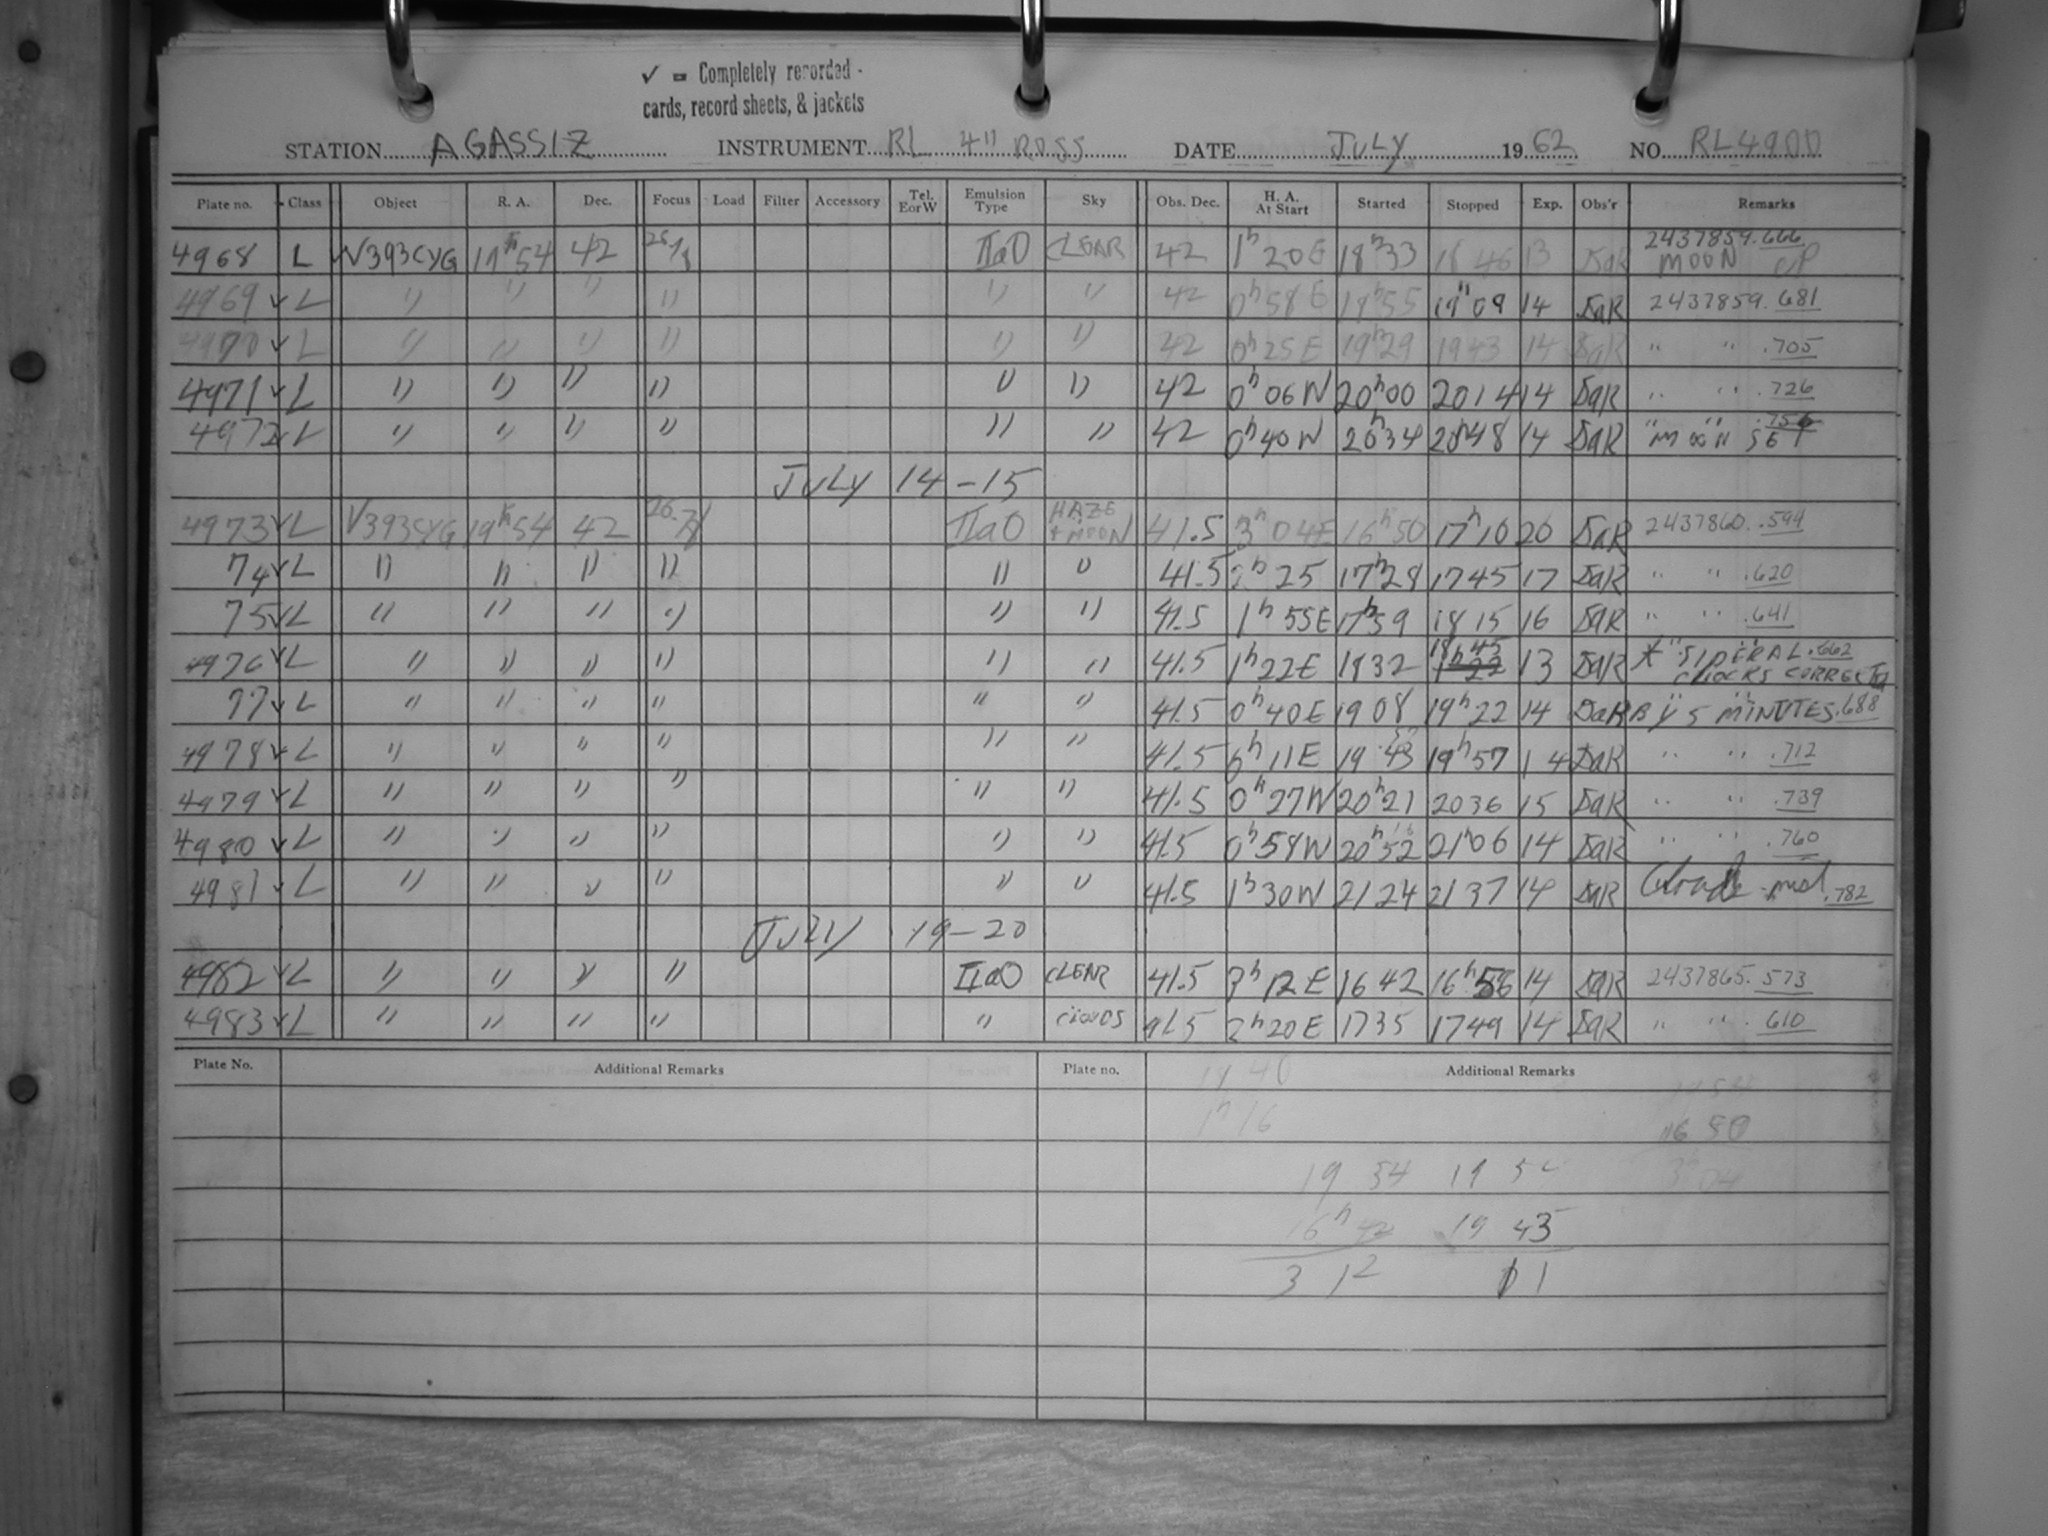 ✓ = Completely recorded -
cards, record sheets, & jackets
STATION AGASSIZ INSTRUMENT RL 4" ROSS DATE JULY 1962 NO. RL4900
Plate no. Class Object R. A. Dec. Focus Load Filter Accessory Tel. EorW Emulsion Type Sky Obs. Dec. H. A. At Start Started Stopped Exp. Obs'r Remarks
4968 L ✓ V393CYG 19h54 42 IIaO CLEAR 42 1h 20E 18h33 18 46 13 DaR 2437859.666 MOON UP
4969 ✓ L " " " " " " 42 0h 58 E 18h55 19h 09 14 DaR 2437859.681
4970 ✓ L " " " " " " 42 0h 25E 19h29 1943 14 DaR " " .705
4971 ✓ L " " " " " " 42 0h 06W 20h00 2014 14 DaR " " .726
4972 ✓ L " " " " " " 42 0h 40W 20h34 2048 14 DaR " " MOON SET
JULY 14-15
4973 ✓ L V393CYG 19h54 42 IIaO HAZE + MOON 41.5 3h 04E 16h50 17h10 20 DaR 2437860.594
74 ✓ L " " " " " " 41.5 2h 25 17h28 1745 17 DaR " " .620
75 ✓ L " " " " " " 41.5 1h 55E 17h59 18 15 16 DaR " " .641
4976 ✓ L " " " " " " 41.5 1h 22E 1832 18h45 13 DaR * " SIDERAL " .662 CLOCKS CORRECTED
77 ✓ L " " " " " " 41.5 0h 40E 1908 19h22 14 DaR BY 5 MINUTES .688
4978 ✓ L " " " " " " 41.5 0h 11E 19 43 19h57 14 DaR " " .712
4979 ✓ L " " " " " " 41.5 0h 27W 20h21 2036 15 DaR " " .739
4980 ✓ L " " " " " " 41.5 0h 58W 20h52 21h06 14 DaR " " .760
4981 ✓ L " " " " " " 41.5 1h 30W 2124 2137 14 DaR .782
JULY 19-20
4982 ✓ L " " " " IIaO CLEAR 41.5 3h 12E 1642 16h56 14 DaR 2437865.573
4983 ✓ L " " " " " CLOUDS 41.5 2h 20E 1735 1749 14 DaR " " .610
Plate No. Additional Remarks Plate no. Additional Remarks
40
16
16 50
19 54 19 54 3h 04
16h 42 19 43
3 12 11